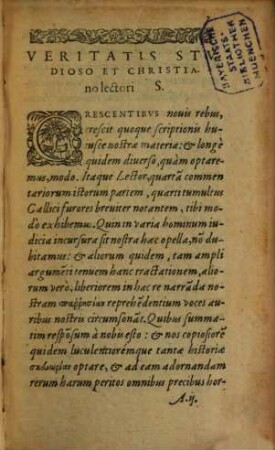 VERITATIS ST
DIOSO ET CHRISTIA-
no lectori S.
BAYERISCHE
STAATS-
BIBLIOTHEK
MUENCHEN
CRESCENTIBVS nouis rebus,
crescit quoque scriptionis hu-
iusce nostræ materia: & longè
quidem diuerso, quàm optare-
mus, modo. Itaque Lector, quartã commen
tariorum istorum partem, quarti tumultus
Gallici furores breuiter notantem, tibi mo-
dò exhibemus. Quin in varia hominum iu-
dicia incursura sit nostra hæc opella, nõ du-
bitamus: & aliorum quidem, tam ampli
argumẽti tenuem hanc tractationem, alio-
rum verò, liberiorem in hac re narrãda no-
stram παῤῥησίαν reprehẽdentium voces au-
ribus nostris circumsonãt. Quibus summa-
tim respõsum à nobis esto: & nos copiosiorẽ
quidem luculentiorémque tantæ historiæ
optare, & ad eam adornandam
rerum harum peritos omnibus precibus hor-
A.ij.